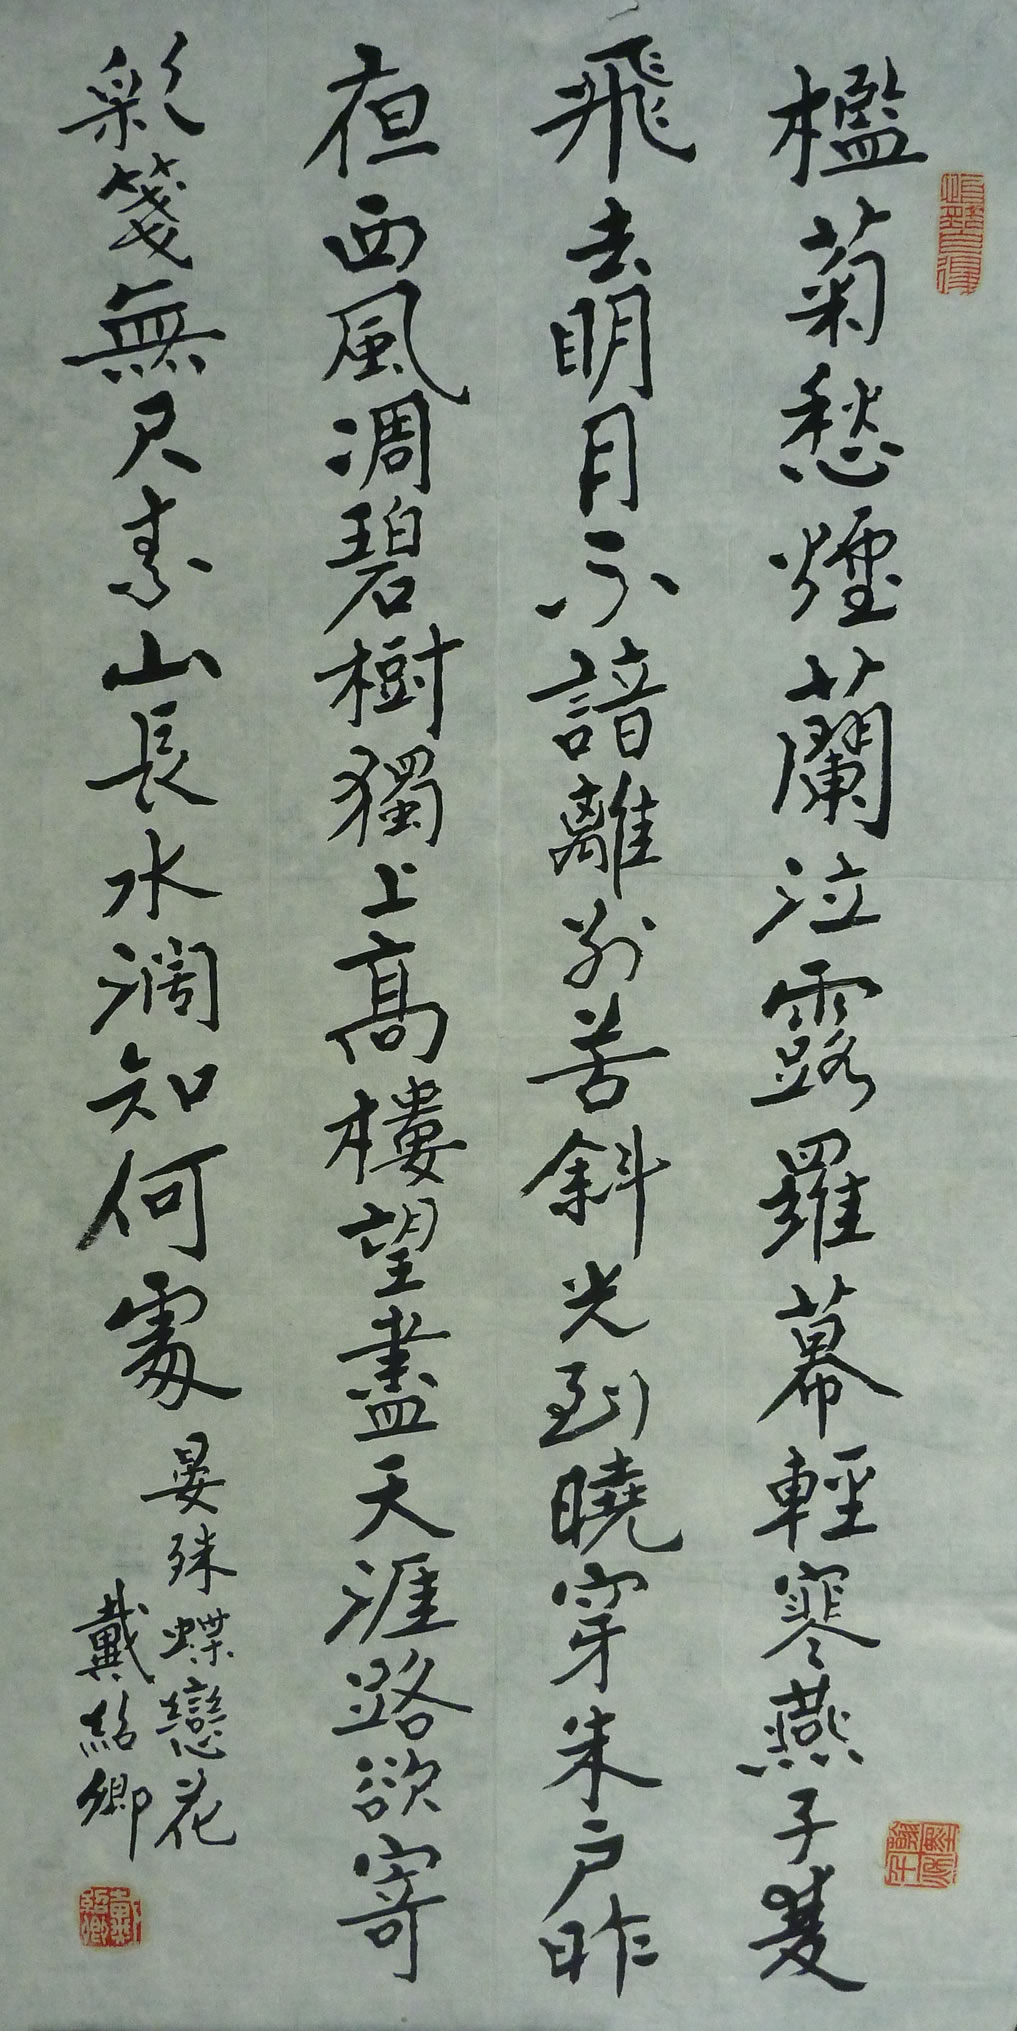 檻菊愁煙蘭泣露羅幕輕寒燕子雙
飛去明月不諳離別苦斜光到曉穿朱戶昨
夜西風凋碧樹獨上高樓望盡天涯路欲寄
彩箋無尺素山長水闊知何處
晏殊蝶戀花
戴紹卿
戴紹卿